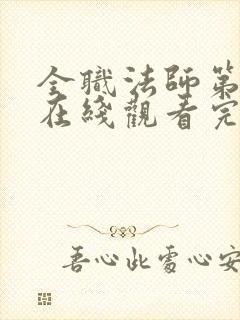 全職法師第
在綫觀看完
吾心此處心安